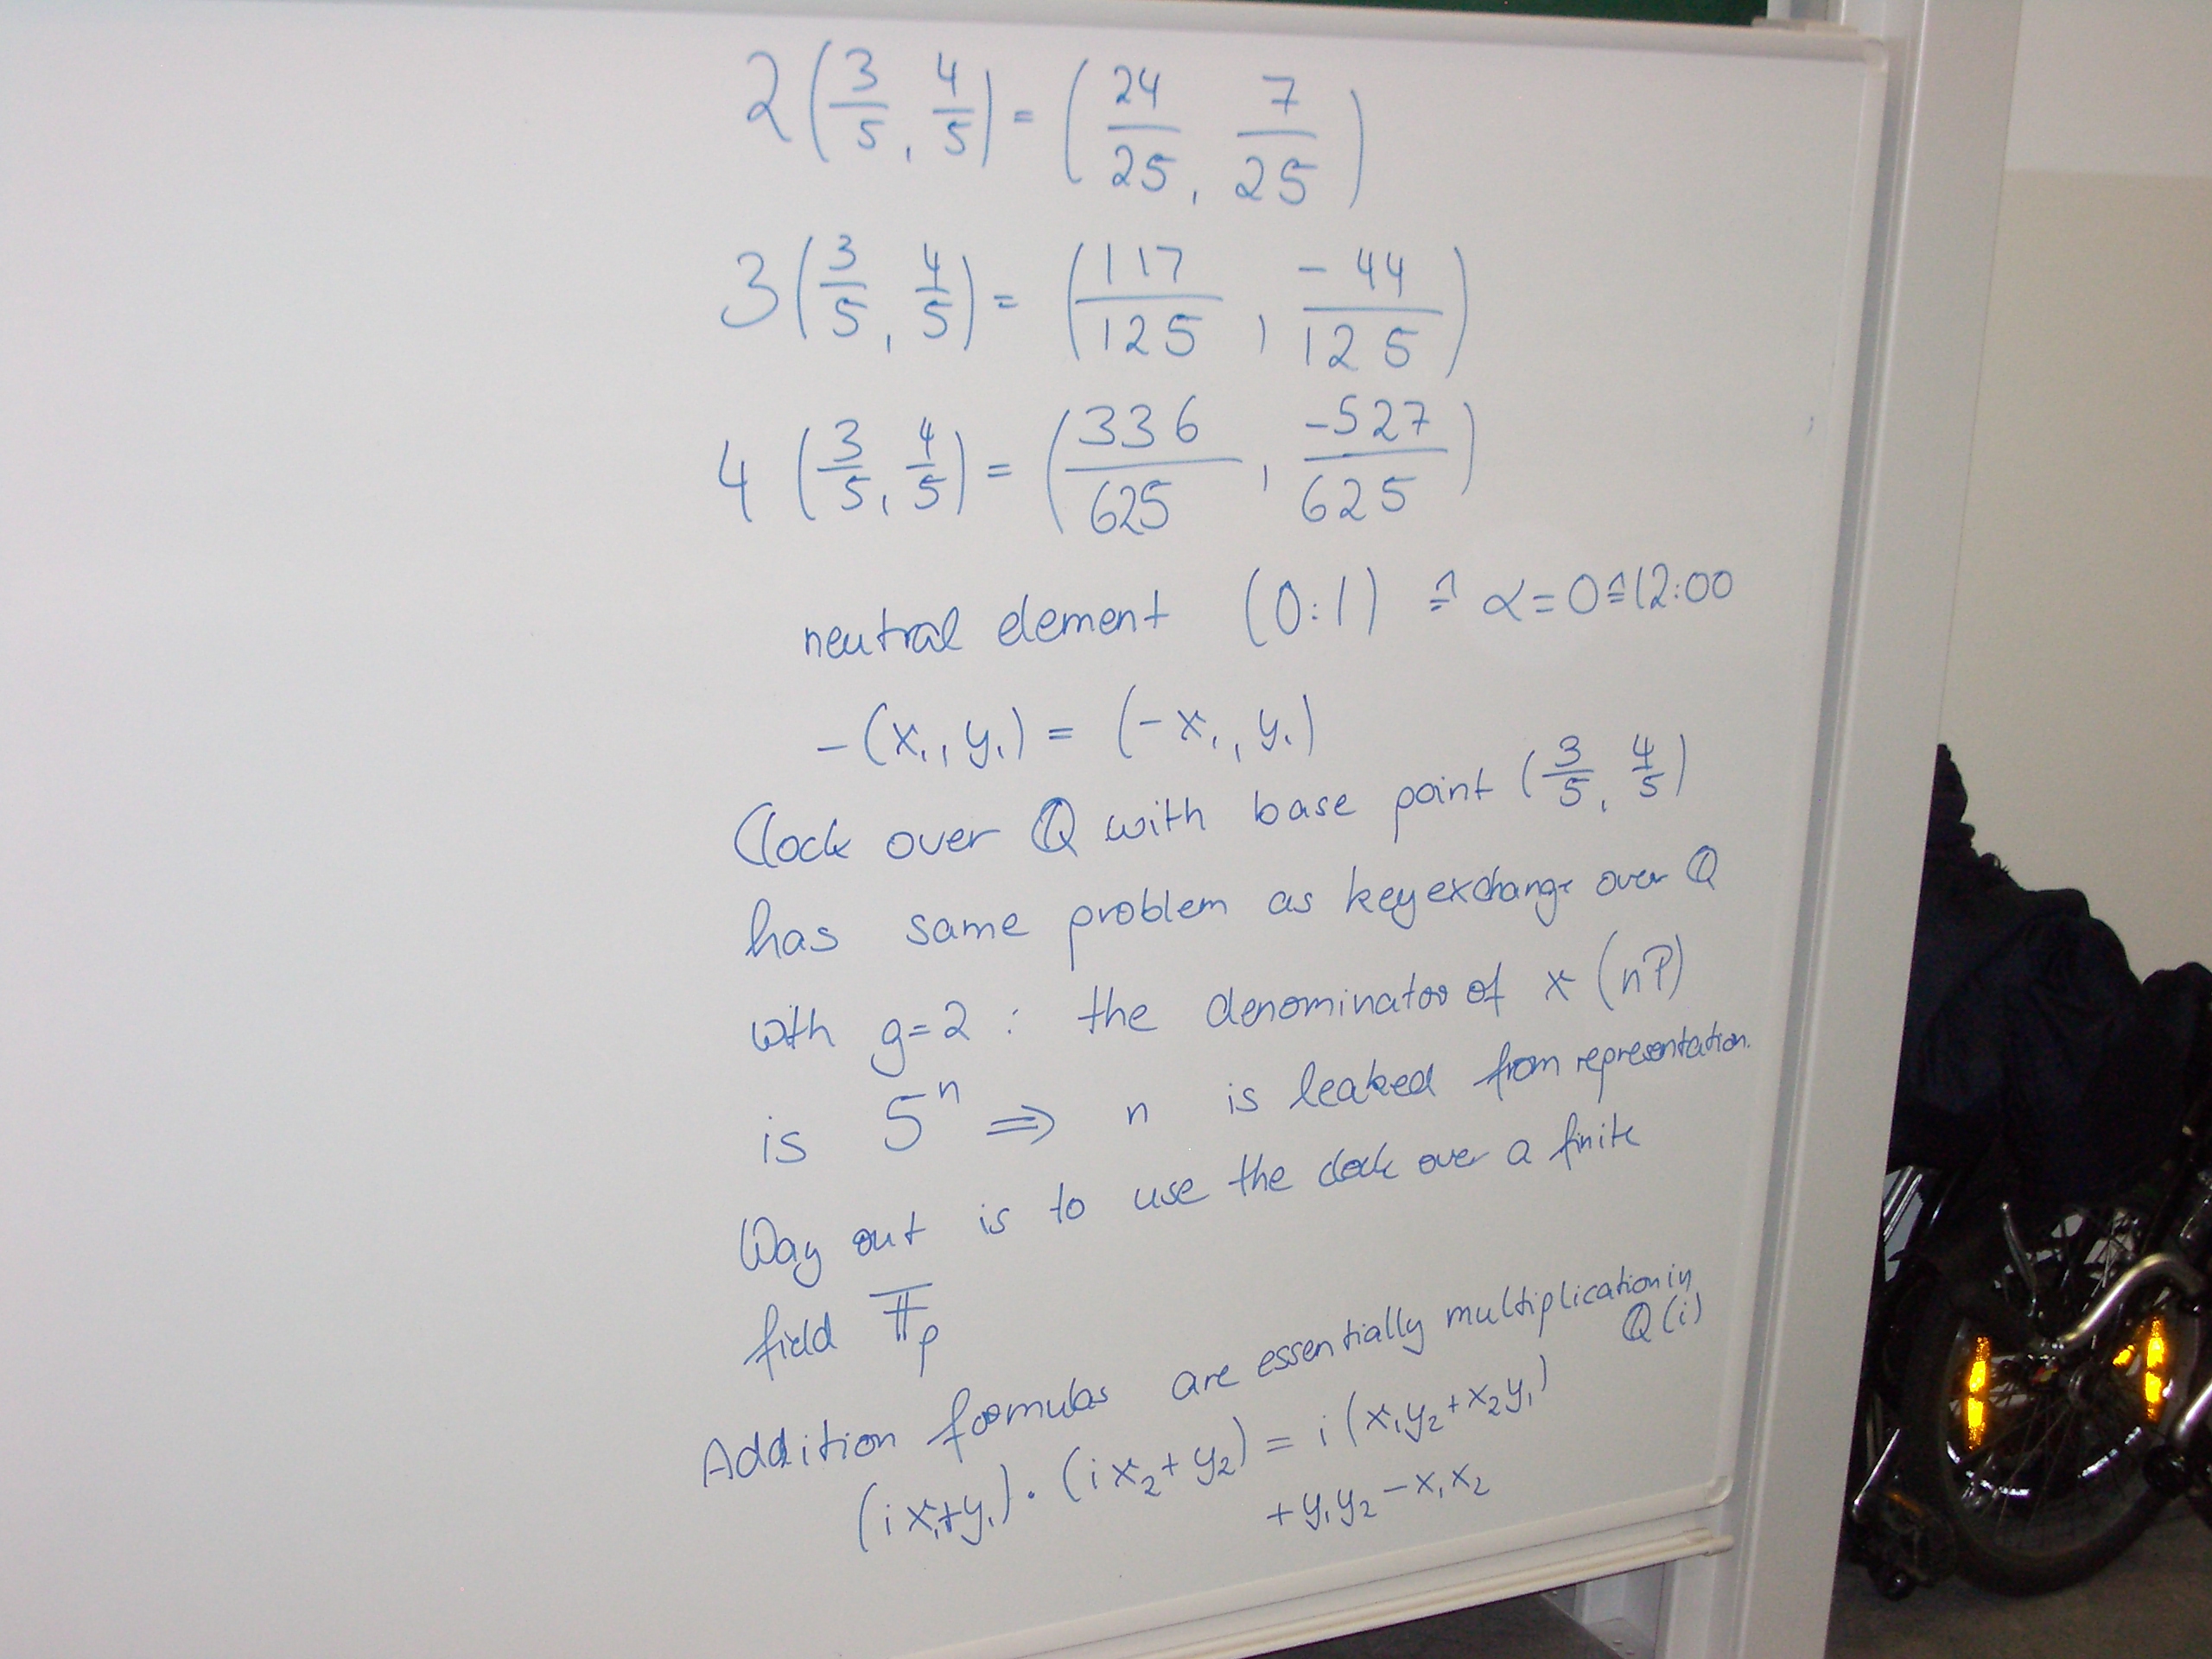 2(3/5, 4/5) = (24/25, 7/25)
3(3/5, 4/5) = (117/125, -44/125)
4(3/5, 4/5) = (336/625, -527/625)
neutral element (0:1) ≙ α=0≙12:00
-(x₁, y₁) = (-x₁, y₁)
Clock over ℚ with base point (3/5, 4/5)
has same problem as keyexchange over ℚ
with g=2 : the denominator of x(nP)
is 5ⁿ ⇒ n is leaked from representation.
Way out is to use the clock over a finite
field 𝔽ₚ
Addition formulas are essentially multiplication in
ℚ(i)
(ix₁+y₁)·(ix₂+y₂) = i(x₁y₂+x₂y₁)
+y₁y₂-x₁x₂